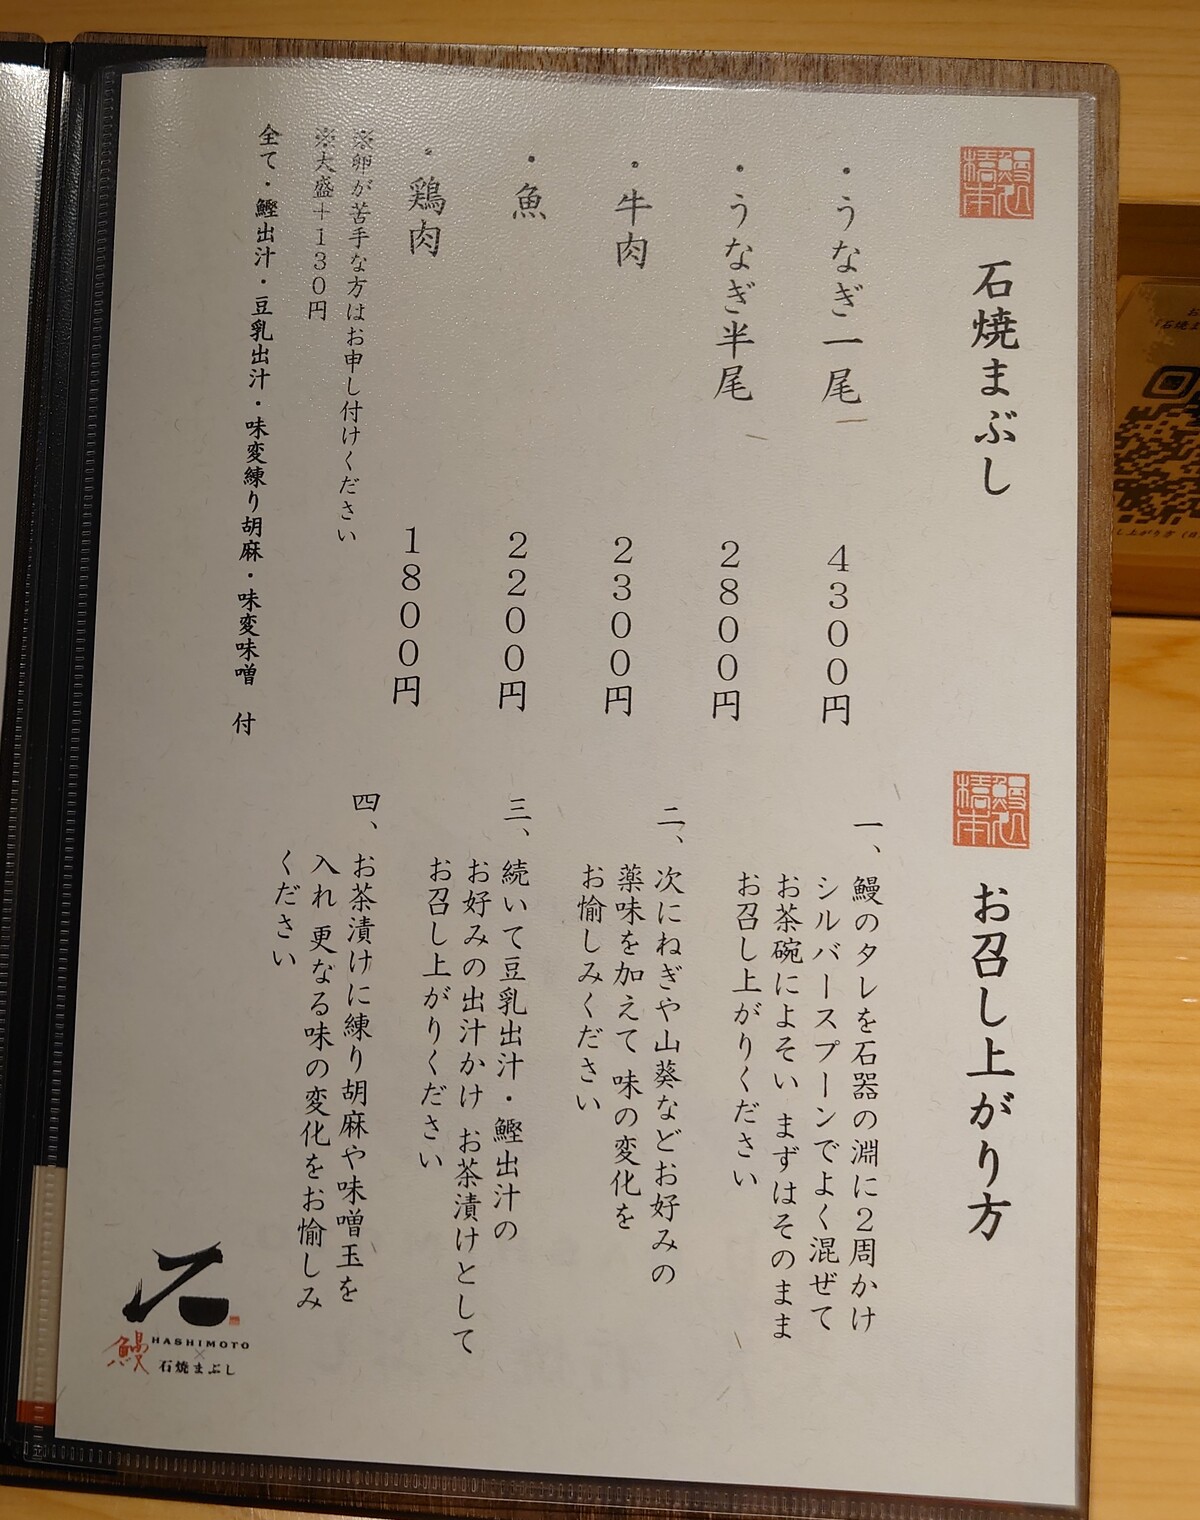 石焼まぶし
・うなぎ一尾 4300円
・うなぎ半尾 2800円
・牛肉 2300円
・魚 2200円
・鶏肉 1800円
※卵が苦手な方はお申し付けください
※大盛＋130円
全て・鰹出汁・豆乳出汁・味変練り胡麻・味変味噌 付
お召し上がり方
一、鰻のタレを石器の淵に2周かけ
シルバースプーンでよく混ぜて
お茶碗によそい まずはそのまま
お召し上がりください
二、次にねぎや山葵などお好みの
薬味を加えて 味の変化を
お愉しみください
三、続いて豆乳出汁・鰹出汁の
お好みの出汁かけ お茶漬けとして
お召し上がりください
四、お茶漬けに練り胡麻や味噌玉を
入れ 更なる味の変化をお愉しみ
ください
石
HASHIMOTO
鰻
×
石焼まぶし